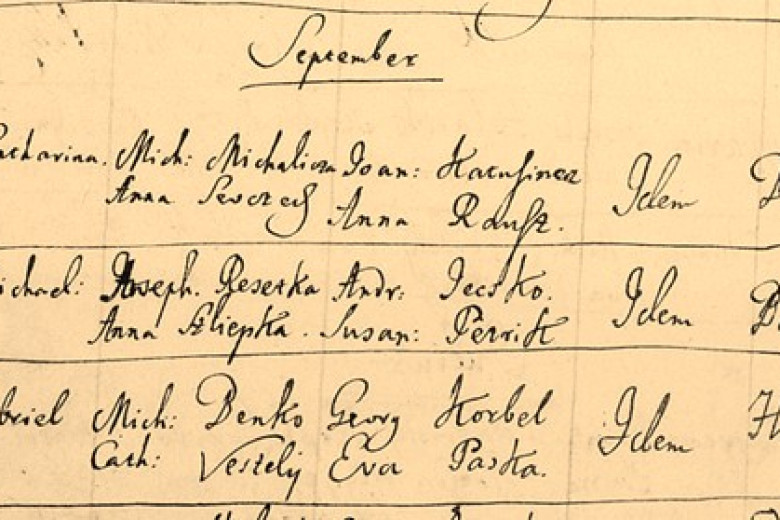 September
Catharina. Mich: Michalicza Joan: Katusincz
Anna Anna Rausz.
Idem
Joseph. Peserka Andr: Jecsko. Idem
Anna Szliepka. Susan: Petrik
briel Mich: Benko Georg Korbel Idem
Cath: Veselij Eva Paska.